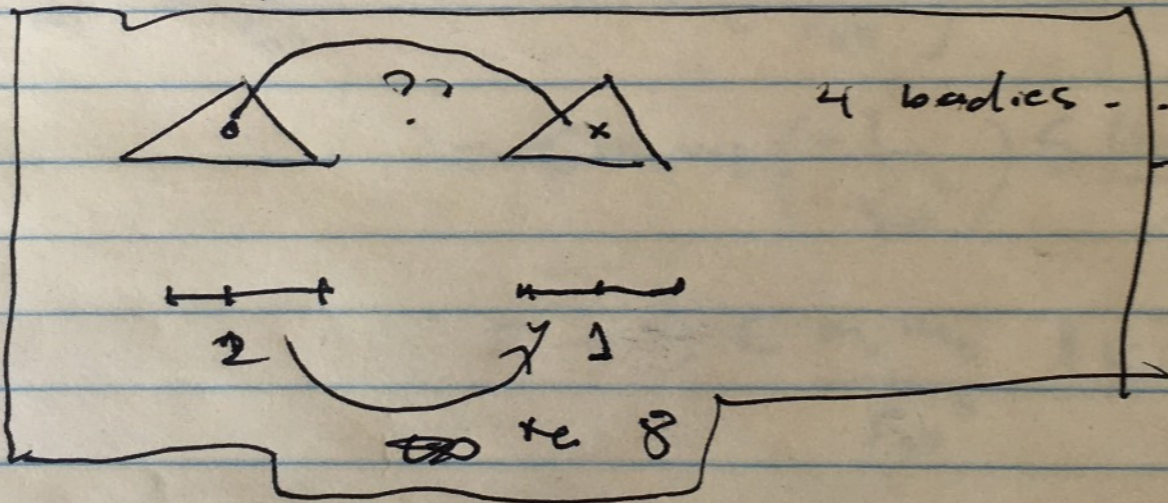 ?? 4 badies - -
x
2 1
8